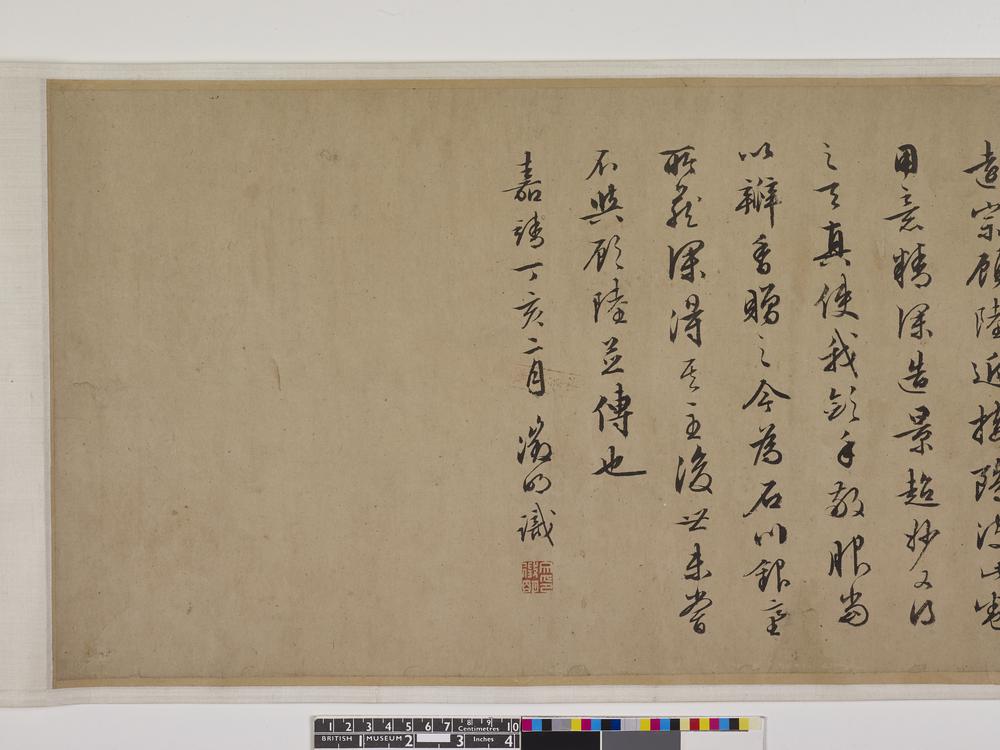 遠宗顧陸近接此卷
用意精深造景超妙又得
之天真使我斂手敬服當
以瓣香贈之今為石川銀臺
所藏深得其主後世未嘗
不與顧陸並傳也
嘉靖丁亥二月 徵明識
1 2 3 4 5 6 7 8 9 10
Centimetres
BRITISH 1 MUSEUM 2 3 Inches 4